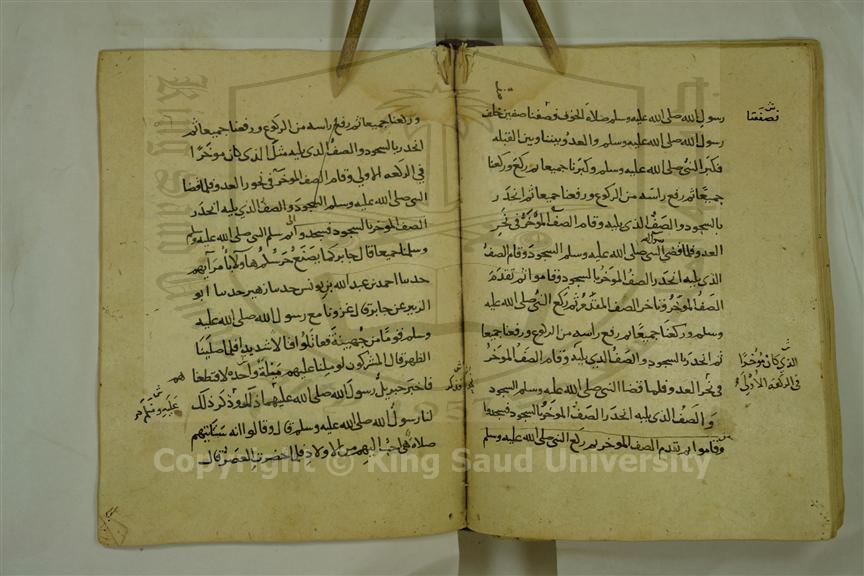 رسول الله صلى الله عليه وسلم صلاة الخوف فصفنا صفين خلف
رسول الله صلى الله عليه وسلم والعدو بيننا وبين القبله
فكبر النبي صلى الله عليه وسلم وكبرنا جميعا ثم ركع وركعنا
جميعا ثم رفع راسه من الركوع ورفعنا جميعا ثم انحدر
بالسجود والصف الذي يليه وقام الصف الموخر في نحر
العدو فلما قضى النبي صلى الله عليه وسلم السجود وقام الصف
الذي يليه انحدر الصف الموخر بالسجود وقاموا ثم تقدم
الصف الموخر وتاخر الصف المقدم ثم ركع النبي صلى الله عليه
وسلم وركعنا جميعا ثم رفع راسه من الركوع ورفعنا جميعا
ثم انحدر بالسجود والصف الذي يليه وقام الصف الموخر
في نحر العدو فلما قضا النبي صلى الله عليه وسلم السجود
والصف الذي يليه انحدر الصف الموخر بالسجود فسجدوا
وقاموا ثم تقدم الصف الموخر ثم ركع النبي صلى الله عليه وسلم
فصففنا
الذي كان موخرا
في الركعه الاولى
وركعنا جميعا ثم رفع راسه من الركوع ورفعنا جميعا ثم
انحدر بالسجود والصف الذي يليه مثل الذي كان موخرا
في الركعه الاولي وقام الصف الموخر في نحور العدو فلما قضا
النبي صلى الله عليه وسلم السجود والصف الذي يليه انحدر
الصف الموخر بالسجود فسجدوا ثم سلم النبي صلى الله عليه وسلم
وسلمنا جميعا قال جابر كما يصنع حرسكم هاولاء بامرآيهم
حدسا احمد بن عبد الله بن يونس حدسا زهير حدسا ابو
الزبير عن جابر قال غزونا مع رسول الله صلى الله عليه
وسلم قوما من جهينة فقاتلونا قتالا شديدا فلما صلينا
الظهر قال المشركون لو ميلنا عليهم ميلة واحده لاقتطعنا هم
فاخبر جبريل رسول الله صلى الله عليه ذلك فذكر ذلك
لنا رسول الله صلى الله عليه وسلم قال وقالوا انه ستاتيهم
صلاة هي احب اليهم من الاولاد فلما حضرت العصر قال
عليه وسلم
Copyright © King Saud University